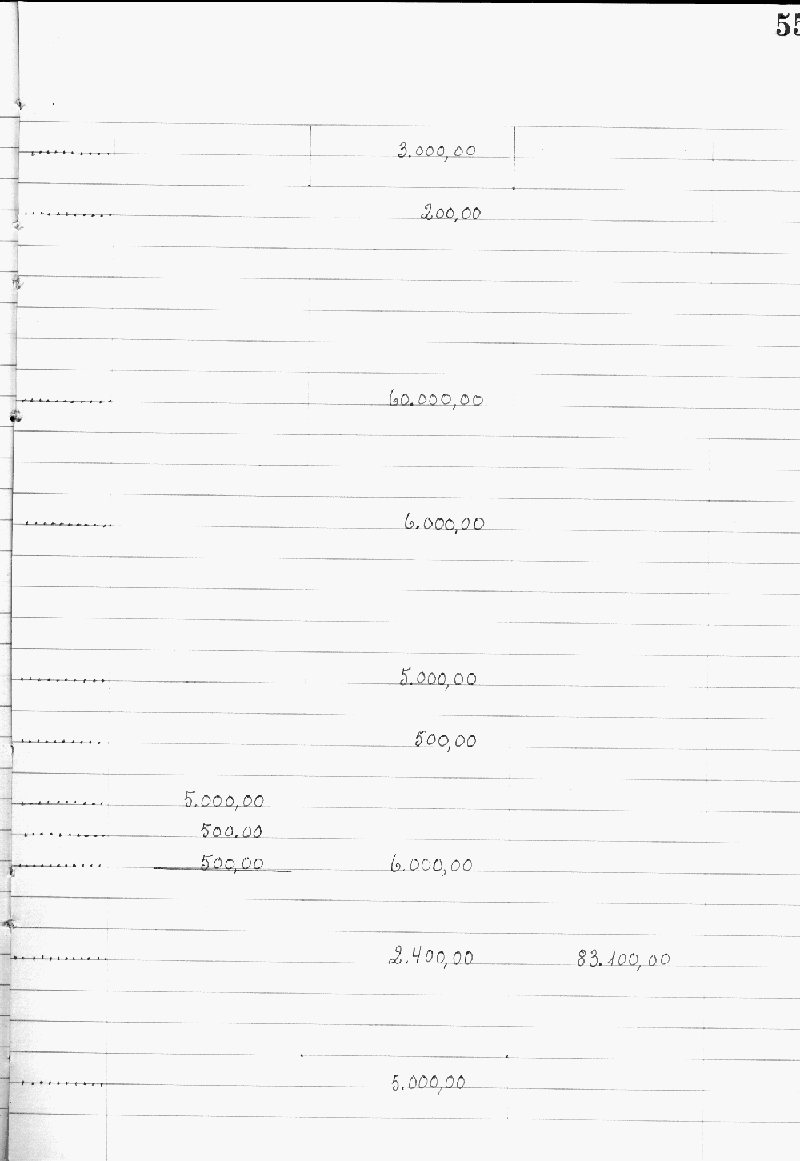 55
3.000,00
200,00
60.000,00
6.000,00
5.000,00
500,00
5.000,00
500.00
500,00 6.000,00
2.400,00 83.100,00
5.000,00